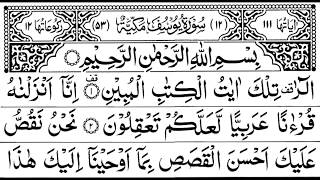 اٰيَاتُهَا ١١١ (١٢) سُوْرَةُ يُوْسُفَ مَكِّيَّةٌ (٥٣) رُكُوْعَاتُهَا ١٢
بِسْمِ اللّٰهِ الرَّحْمٰنِ الرَّحِيْمِ
الٓرٰ ۫ تِلْكَ اٰيٰتُ الْكِتٰبِ الْمُبِيْنِ ۟ اِنَّاۤ اَنْزَلْنٰهُ
قُرْءٰنًا عَرَبِيًّا لَّعَلَّكُمْ تَعْقِلُوْنَ ۟ نَحْنُ نَقُصُّ
عَلَيْكَ اَحْسَنَ الْقَصَصِ بِمَاۤ اَوْحَيْنَاۤ اِلَيْكَ هٰذَا